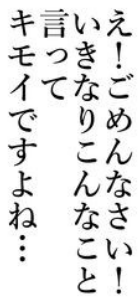 え！ごめんなさい！
いきなりこんなこと
言って
キモイですよね…